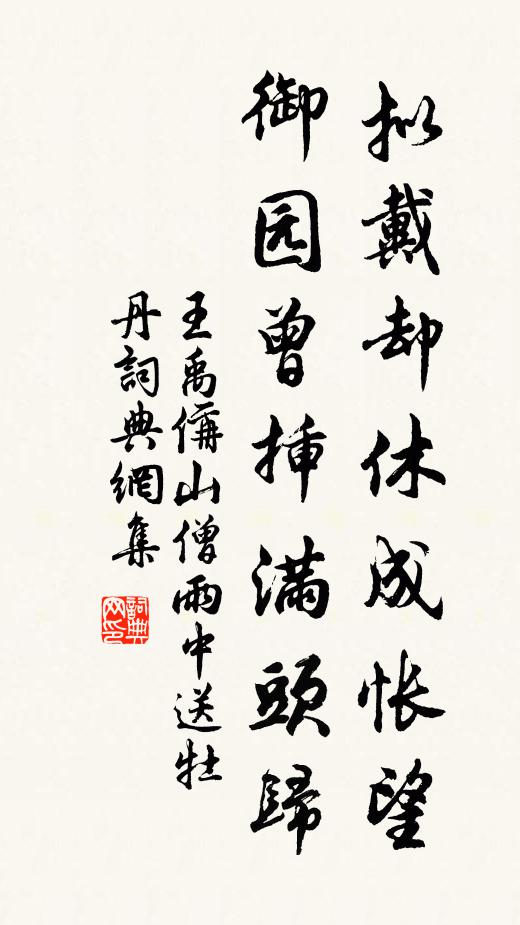 拟戴却休成怅望
御园曾插满头歸
王禹偁山僧雨中送牡
丹詞典網集
詞典網印